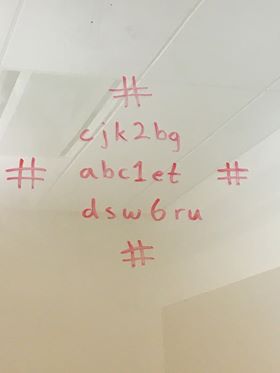 #
cjk2bg
# abc1et #
dsw6ru
#